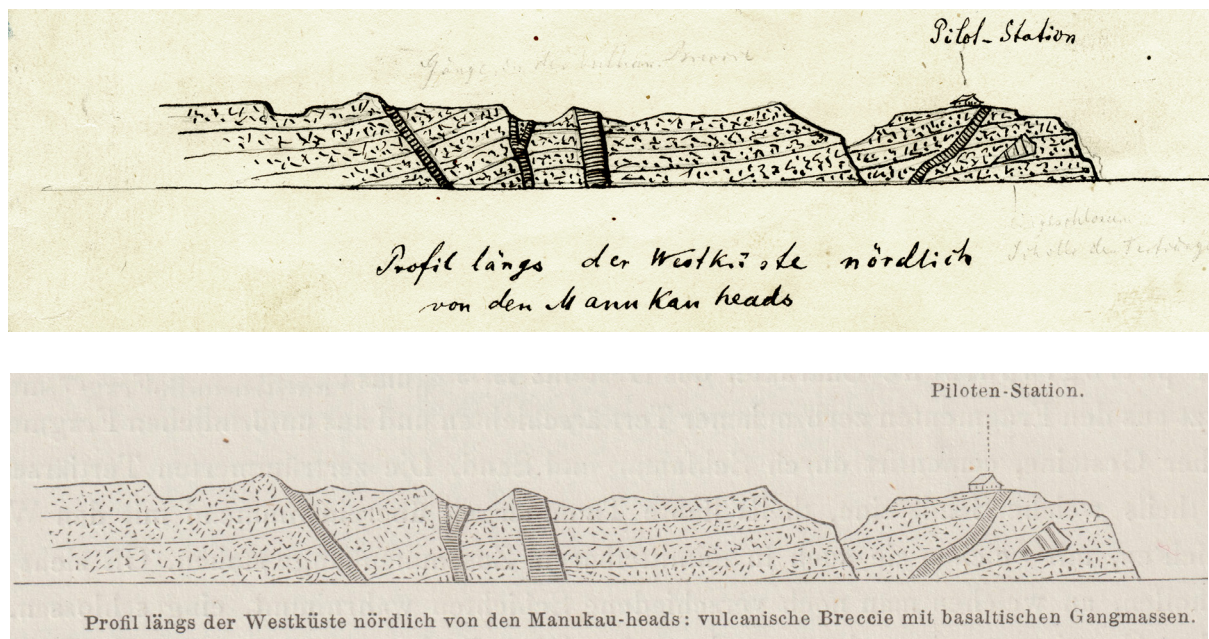 Pilot-Station
Gänge in der
Profil längs der Westküste nördlich
von den Manukau heads
Piloten-Station.
Profil längs der Westküste nördlich von den Manukau-heads: vulcanische Breccie mit basaltischen Gangmassen.